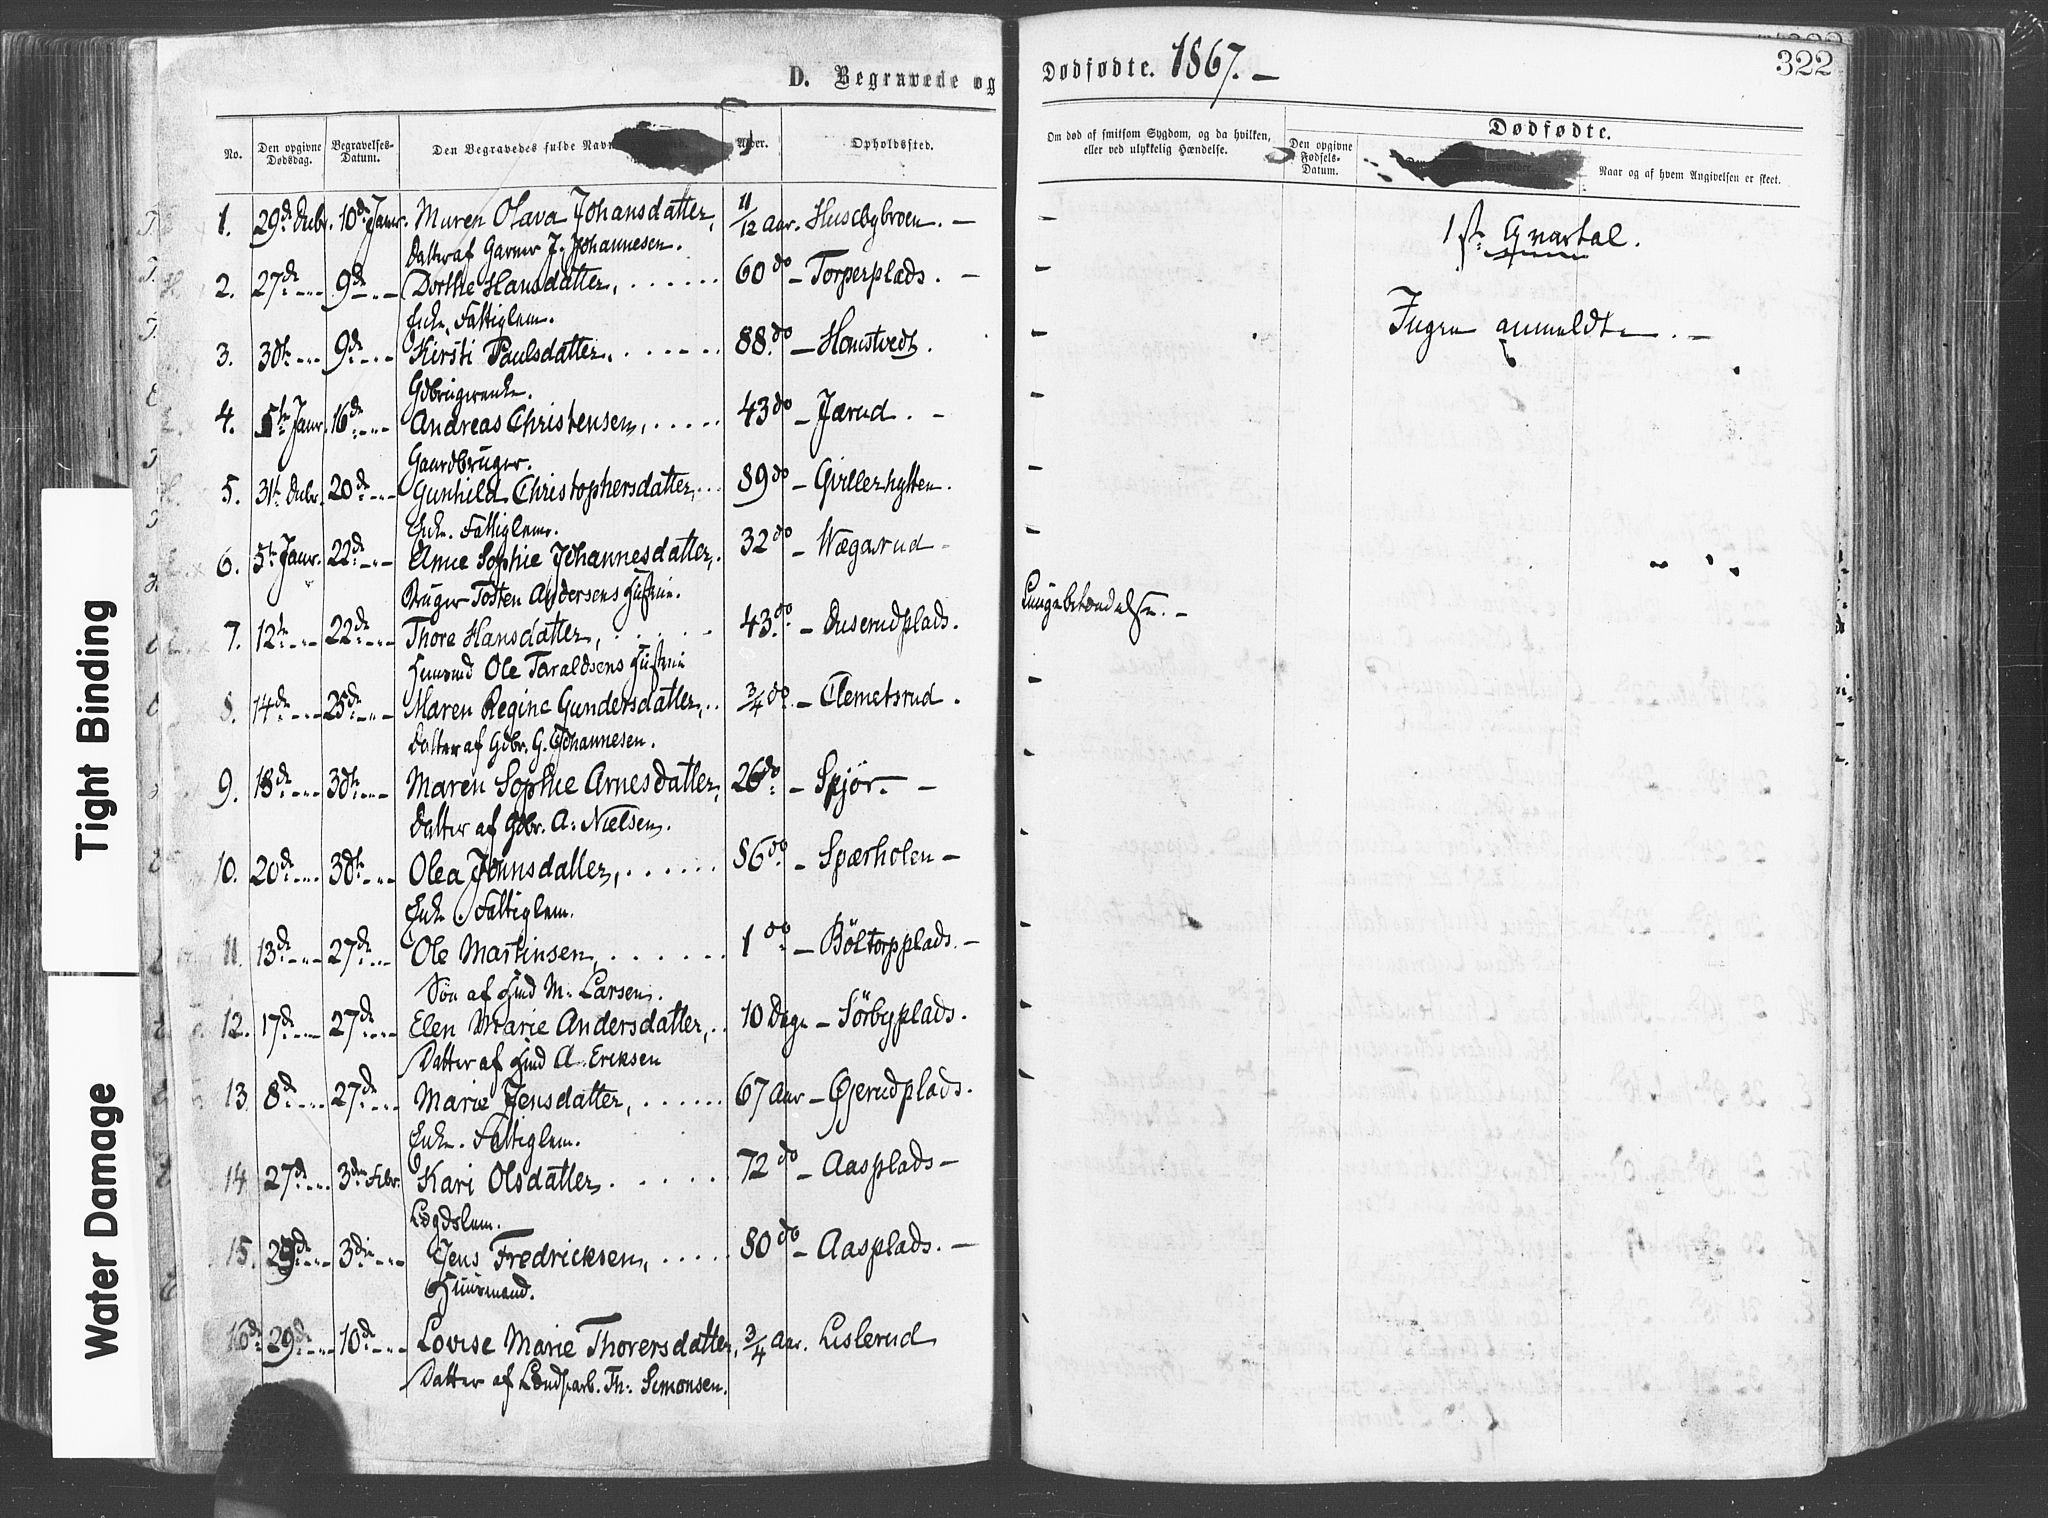 D. Begravede og
Dødfødte. 1867. –
322
No.
Den opgivne Dødsdag.
Begravelses-Datum.
Den Begravedes fulde Navn
Alder.
Opholdssted.
Om død af smitsom Sygdom, og da hvilken,
eller ved ulykkelig Hændelse.
Dødfødte.
Den opgivne Fødsels-Datum.
Naar og af hvem Angivelsen er skeet.
1. 29de Decbr. 10de Janr. Maren Olava Johansdatter, 11/12 Aar. Husebybroen. –
Datter af Garver J. Johannesen.
2. 27de 9de Dorthe Hansdatter, 60 do – Torperplads. –
Enke, Fattiglem.
3. 30te 9de Kirsti Paulsdatter, 88 do – Homstvedt.
Gdbrugerenke.
4. 5te Janr. 16de Andreas Christensen, 43 do – Jærud. –
Gaardbruger.
5. 31te Decbr. 20de Gunhild Christophersdatter, 89 do – Gvillerhytten.
Enke. Fattiglem.
6. 5te Janr. 22de Anne Sophie Johannesdatter, 32 do – Wægarud –
Bruger Tosten Andersens Hustru.
7. 12te 22de Thore Hansdatter, 43 do – Duserudplads. Lungebetændelse. –
Huusmd Ole Taraldsens Hustru
8. 14de 25de Maren Regine Gundersdatter, 3/4 do – Clemetsrud.
Datter af Gdbr. G. Johannesen.
9. 18de 30te Maren Sophie Arnesdatter, 26 do – Spjør. –
Datter af Gdbr. A. Nielsen.
10. 20de 30te Olea Johnsdatter, 86 do – Spærholen –
Enke. Fattiglem.
11. 13de 27de Ole Martinsen, 1 do – Böltorpplads. –
Søn af Hmd M. Larsen.
12. 17de 27de Elen Marie Andersdatter, 10 Dage – Sörbyplads.
Datter af Hmd A. Eriksen
13 8de 27de Marie Jensdatter, 67 Aar – Øjerudplads.
Enke. Fattiglem.
14 27de 3die Febr. Kari Olsdatter 72 do – Aasplads –
Lægdslem.
15. 29de 3die Jens Fredricksen, 80 do – Aasplads. –
Huusmand.
16de 29de 10de Lovise Marie Thorersdatter, 3/4 Aar. Lislerud
Datter af Landharb. Th. Simonsen.
1ste Qvartal.
Ingen anmeldte. –
Tight Binding
Water Damage